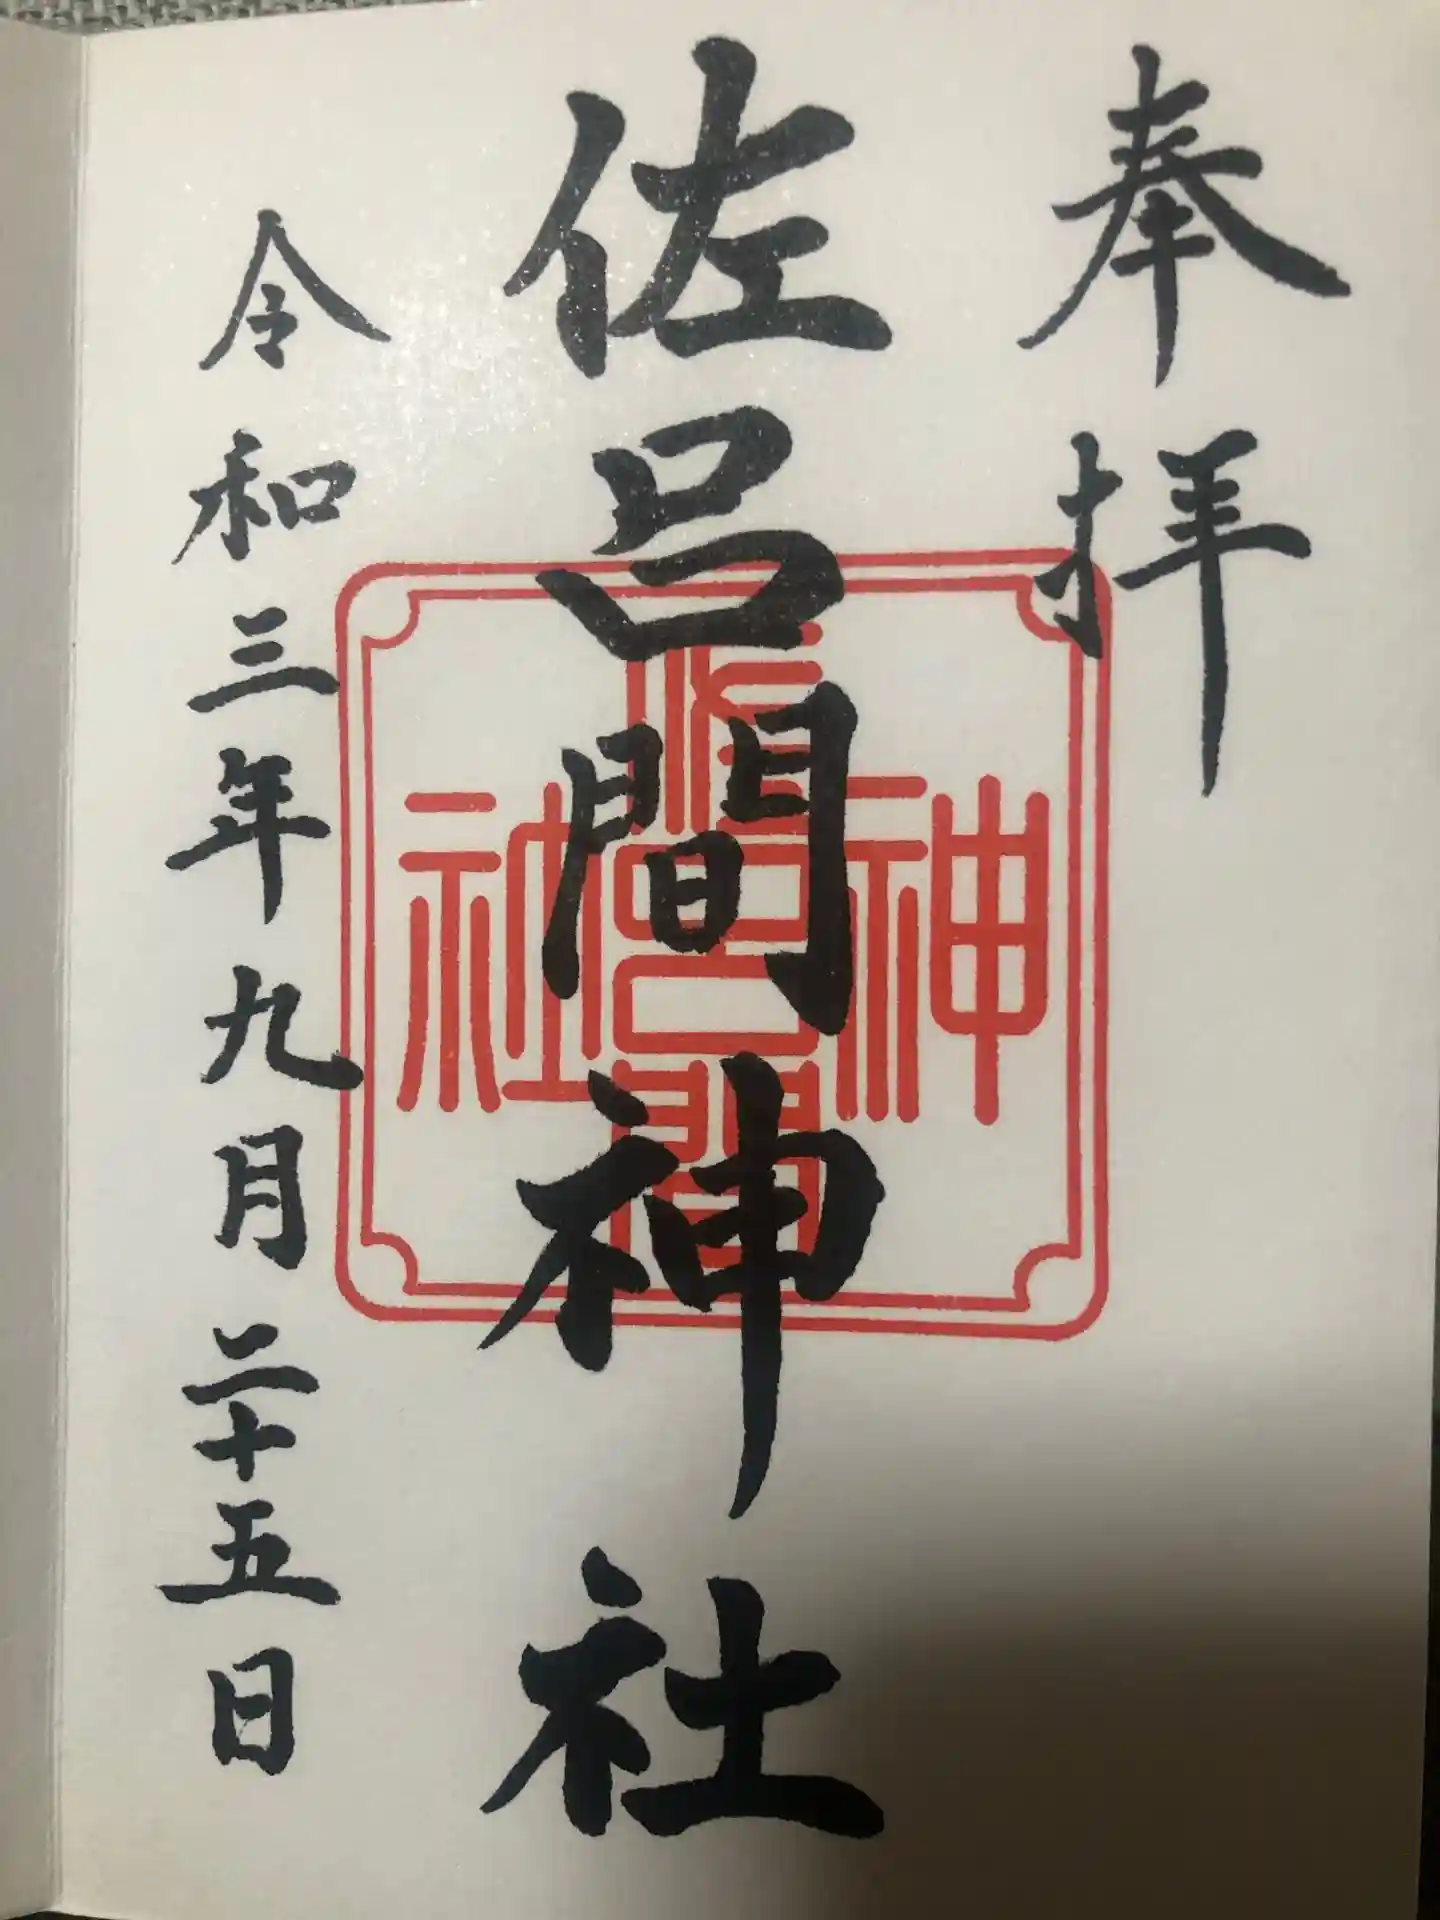 奉拝
佐呂間神社
令和三年九月二十五日
神
佐呂間
社